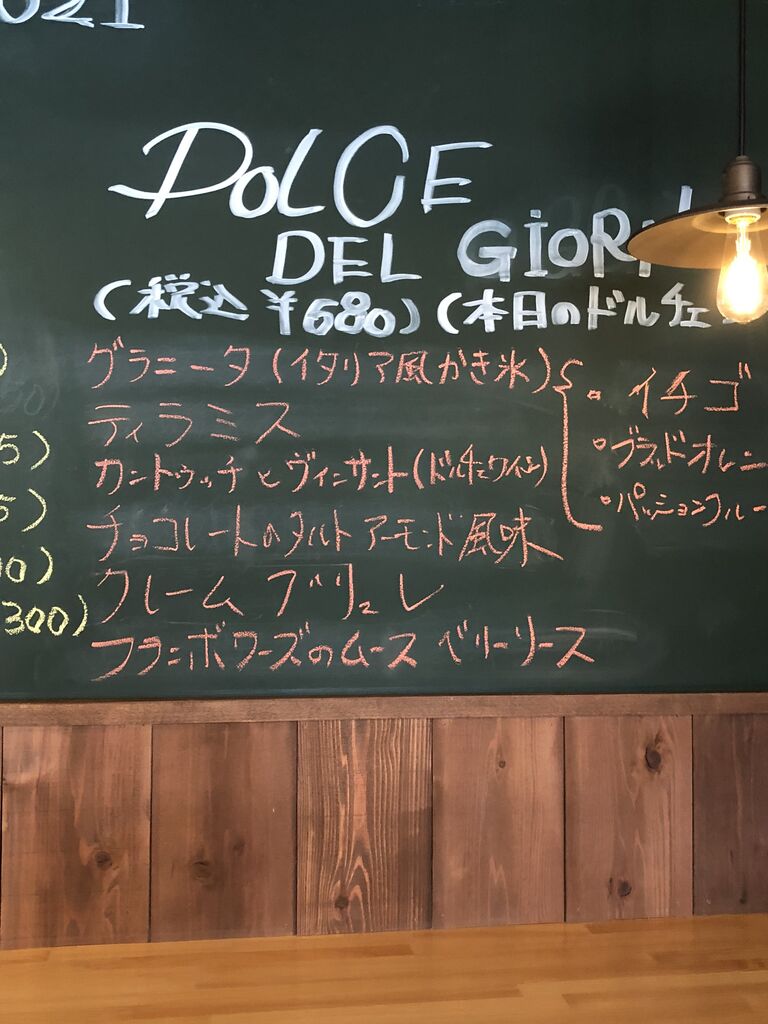 021
DOLCE
DEL GIOR
(税込 ¥680) (本日のドルチェ
グラニータ (イタリア風かき氷)
・イチゴ
・ブラッドオレン
・パッションフルー
ティラミス
カントゥッチとヴィンサント(ドルチェワイン)
チョコレートのタルト アーモンド風味
クレーム ブリュレ
フランボワーズのムース ベリーソース
5)
5)
00)
300)